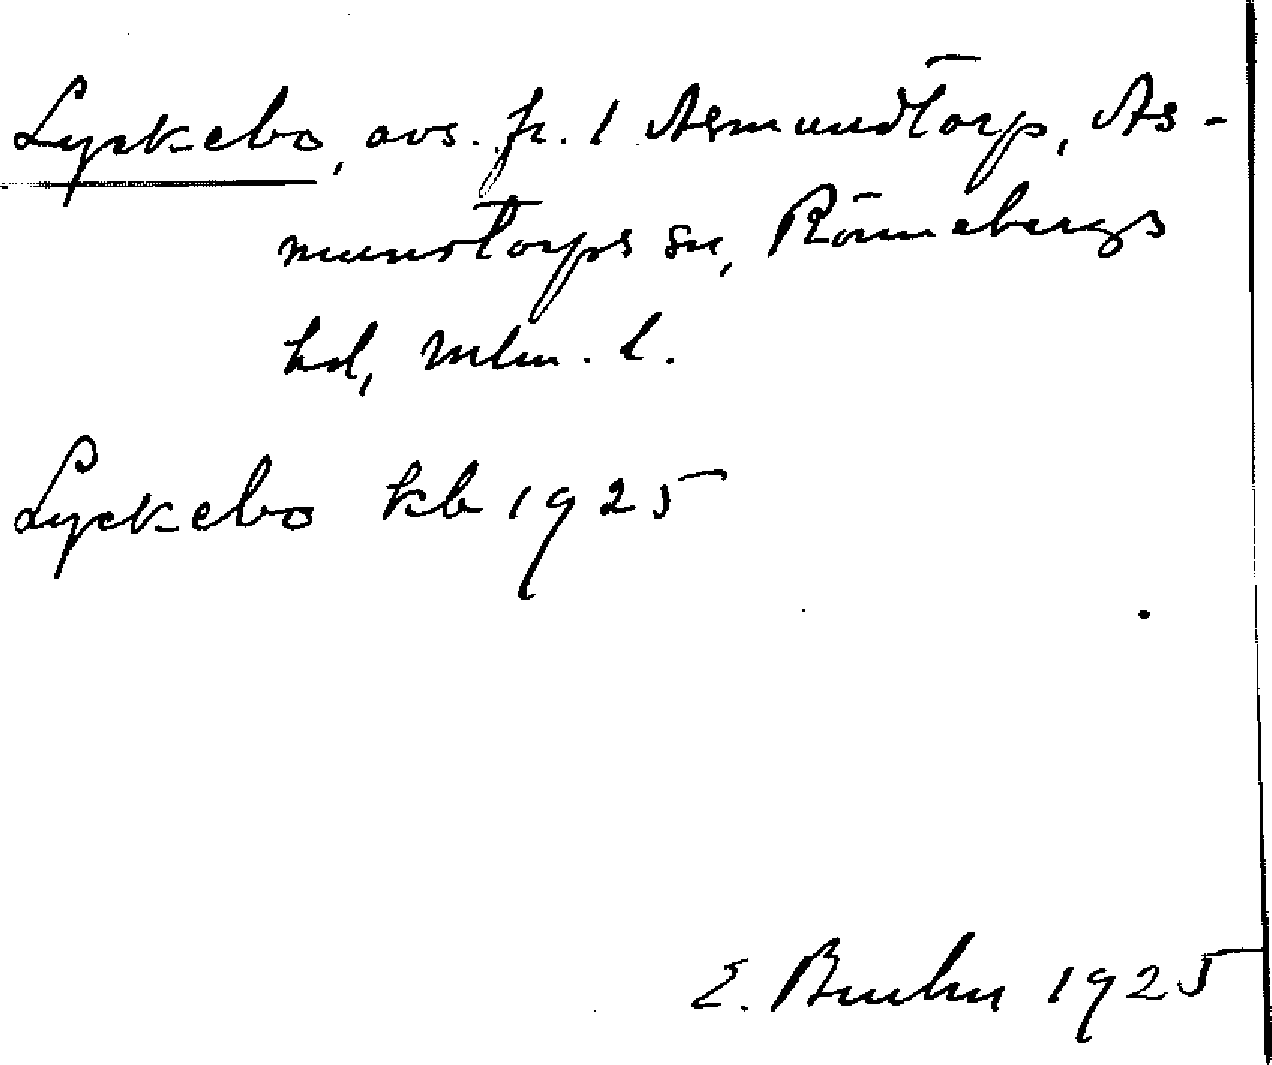 Lyckebo, avs. fr. 1 Asmundtorp, As-
mundtorps sn, Rönnebergs
hd, Mlm. l.
Lyckebo kb 1925
E. Bruhn 1925